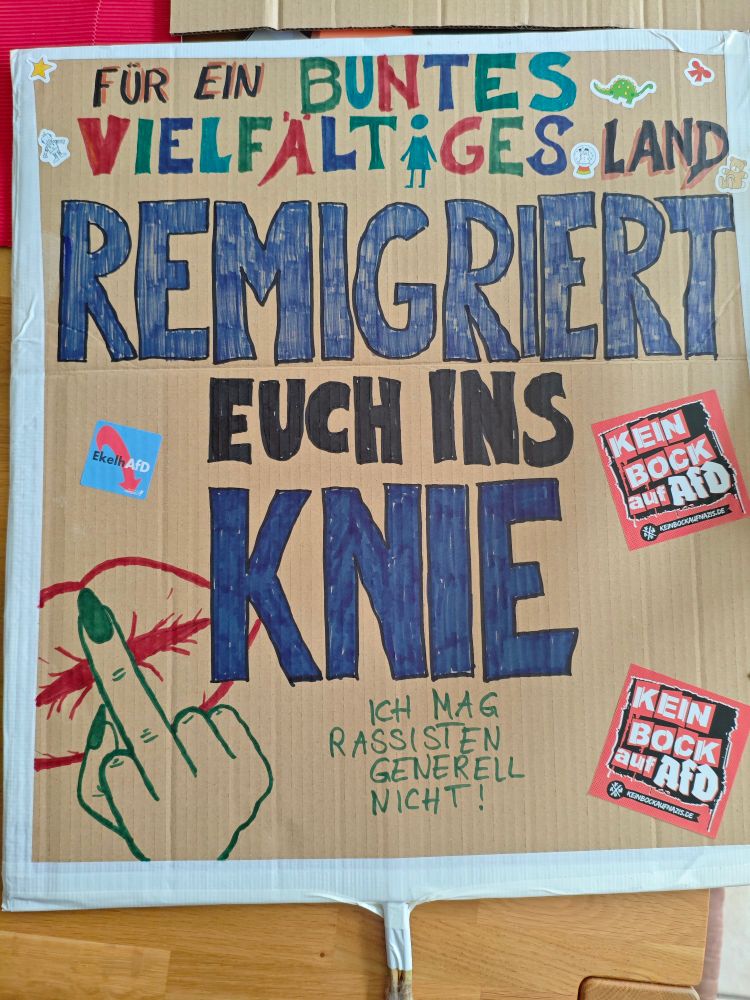 FÜR EIN BUNTES
VIELFÄLTIGES LAND
REMIGRIERT
EUCH INS
KNIE
EkelhAfD
KEIN
BOCK
auf AfD
KEINBOCKAUFNAZIS.DE
ICH MAG
RASSISTEN
GENERELL
NICHT!
KEIN
BOCK
auf AfD
KEINBOCKAUFNAZIS.DE